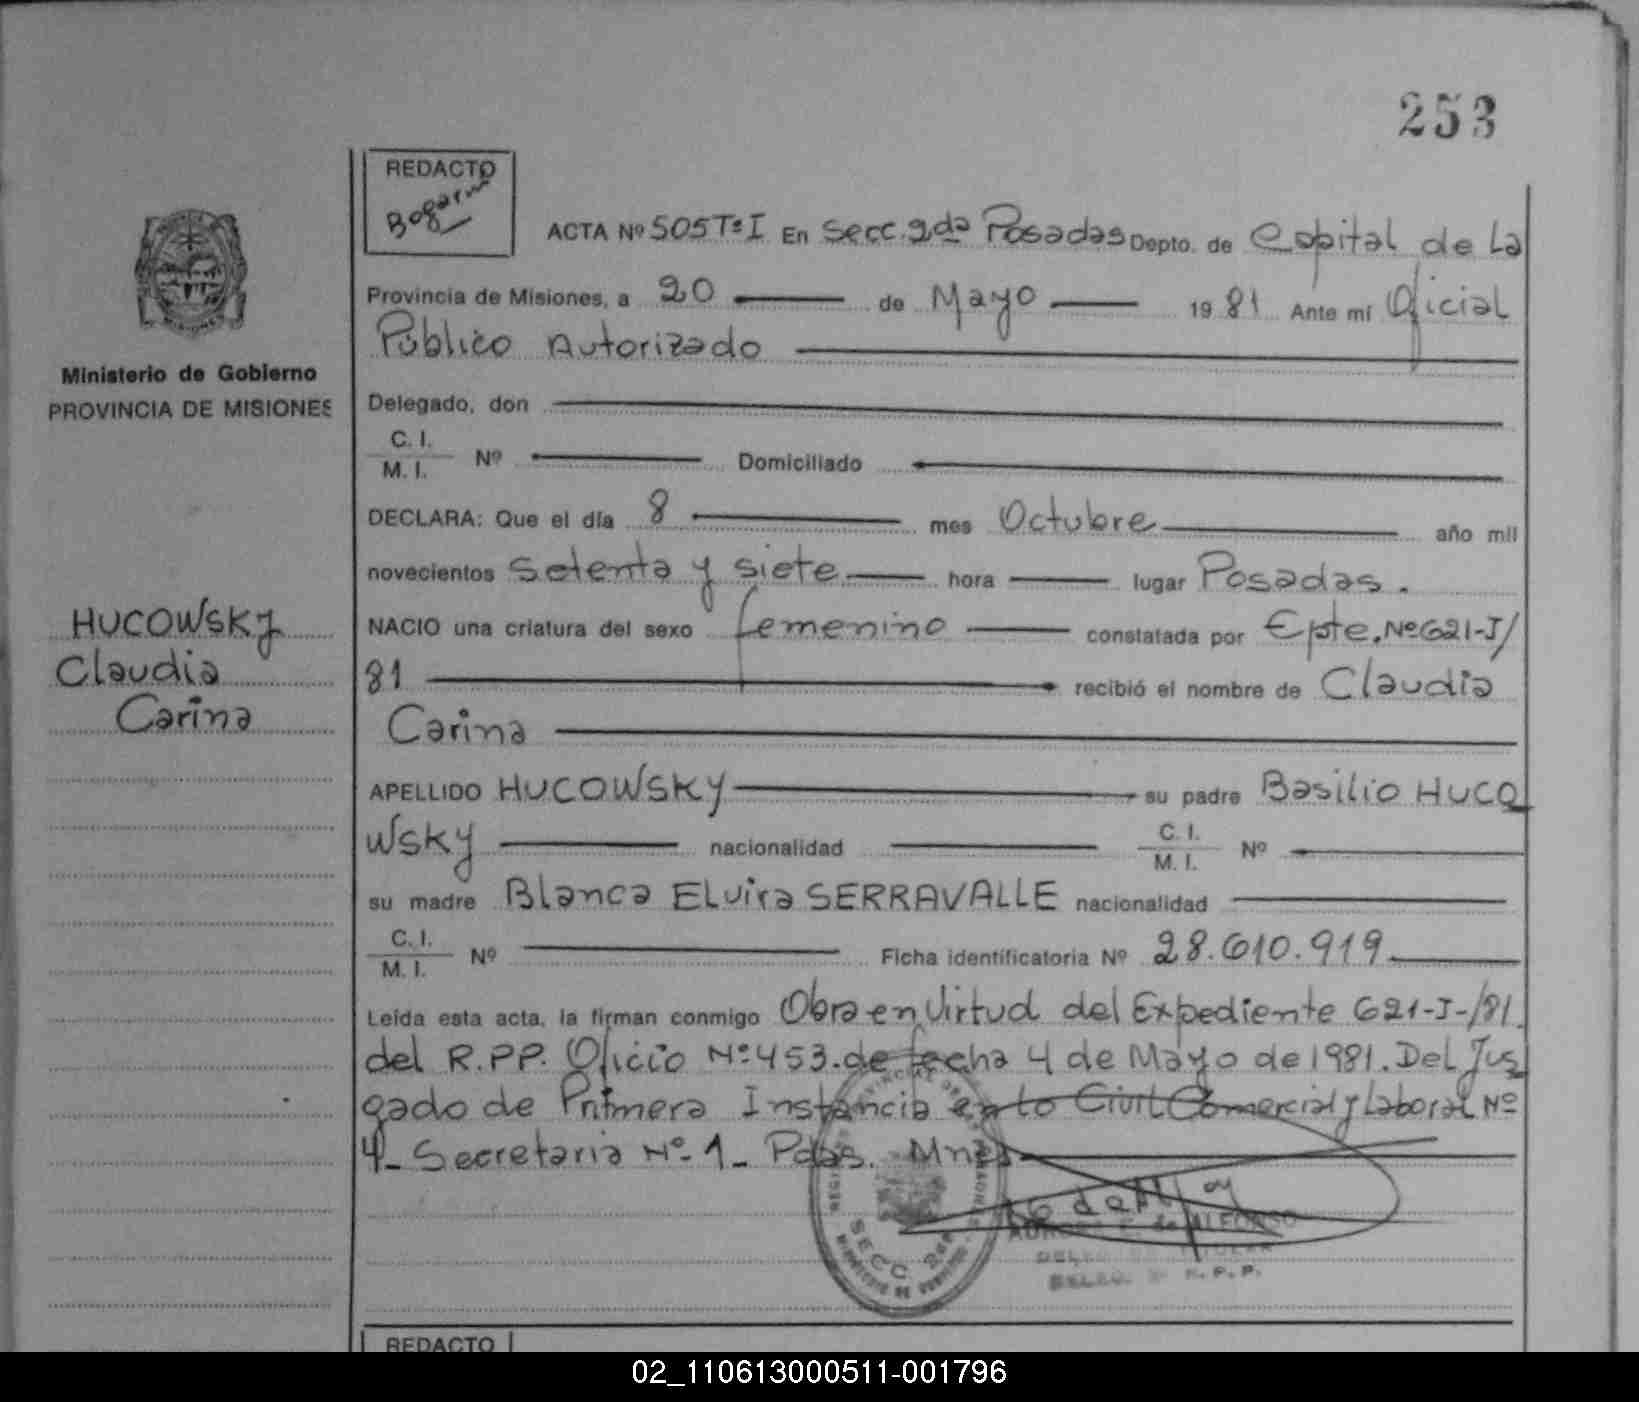 253
REDACTO
Bogarin
ACTA Nº 505 Tº I En Secc. 2da Posadas Depto. de Capital de La
Provincia de Misiones, a 20 de Mayo 1981 Ante mí Oficial
Público Autorizado
Ministerio de Gobierno
PROVINCIA DE MISIONES
Delegado, don
C. I.
M. I. Nº Domiciliado
DECLARA: Que el día 8 mes Octubre año mil
novecientos setenta y siete hora lugar Posadas.
HUCOWSKY
Claudia
Carina
NACIO una criatura del sexo femenino constatada por Epte. Nº 621-J/
81 recibió el nombre de Claudia
Carina
APELLIDO HUCOWSKY su padre Basilio HUCO
WSKY nacionalidad C. I.
M. I. Nº
su madre Blanca ELvira SERRAVALLE nacionalidad
C. I.
M. I. Nº Ficha identificatoria Nº 28.610.919
Leída esta acta, la firman conmigo Obra en Virtud del Expediente 621-J-/81.
del R.PP. Oficio Nº 453. de fecha 4 de Mayo de 1981. Del Juz
gado de Primera Instancia en lo Civil Comercial y Laboral Nº
4- Secretaria Nº 1- Pdas. Mnes
SECC. 2da
de ALFONSO
TITULAR
R. P. P.
REDACTO
02_110613000511-001796